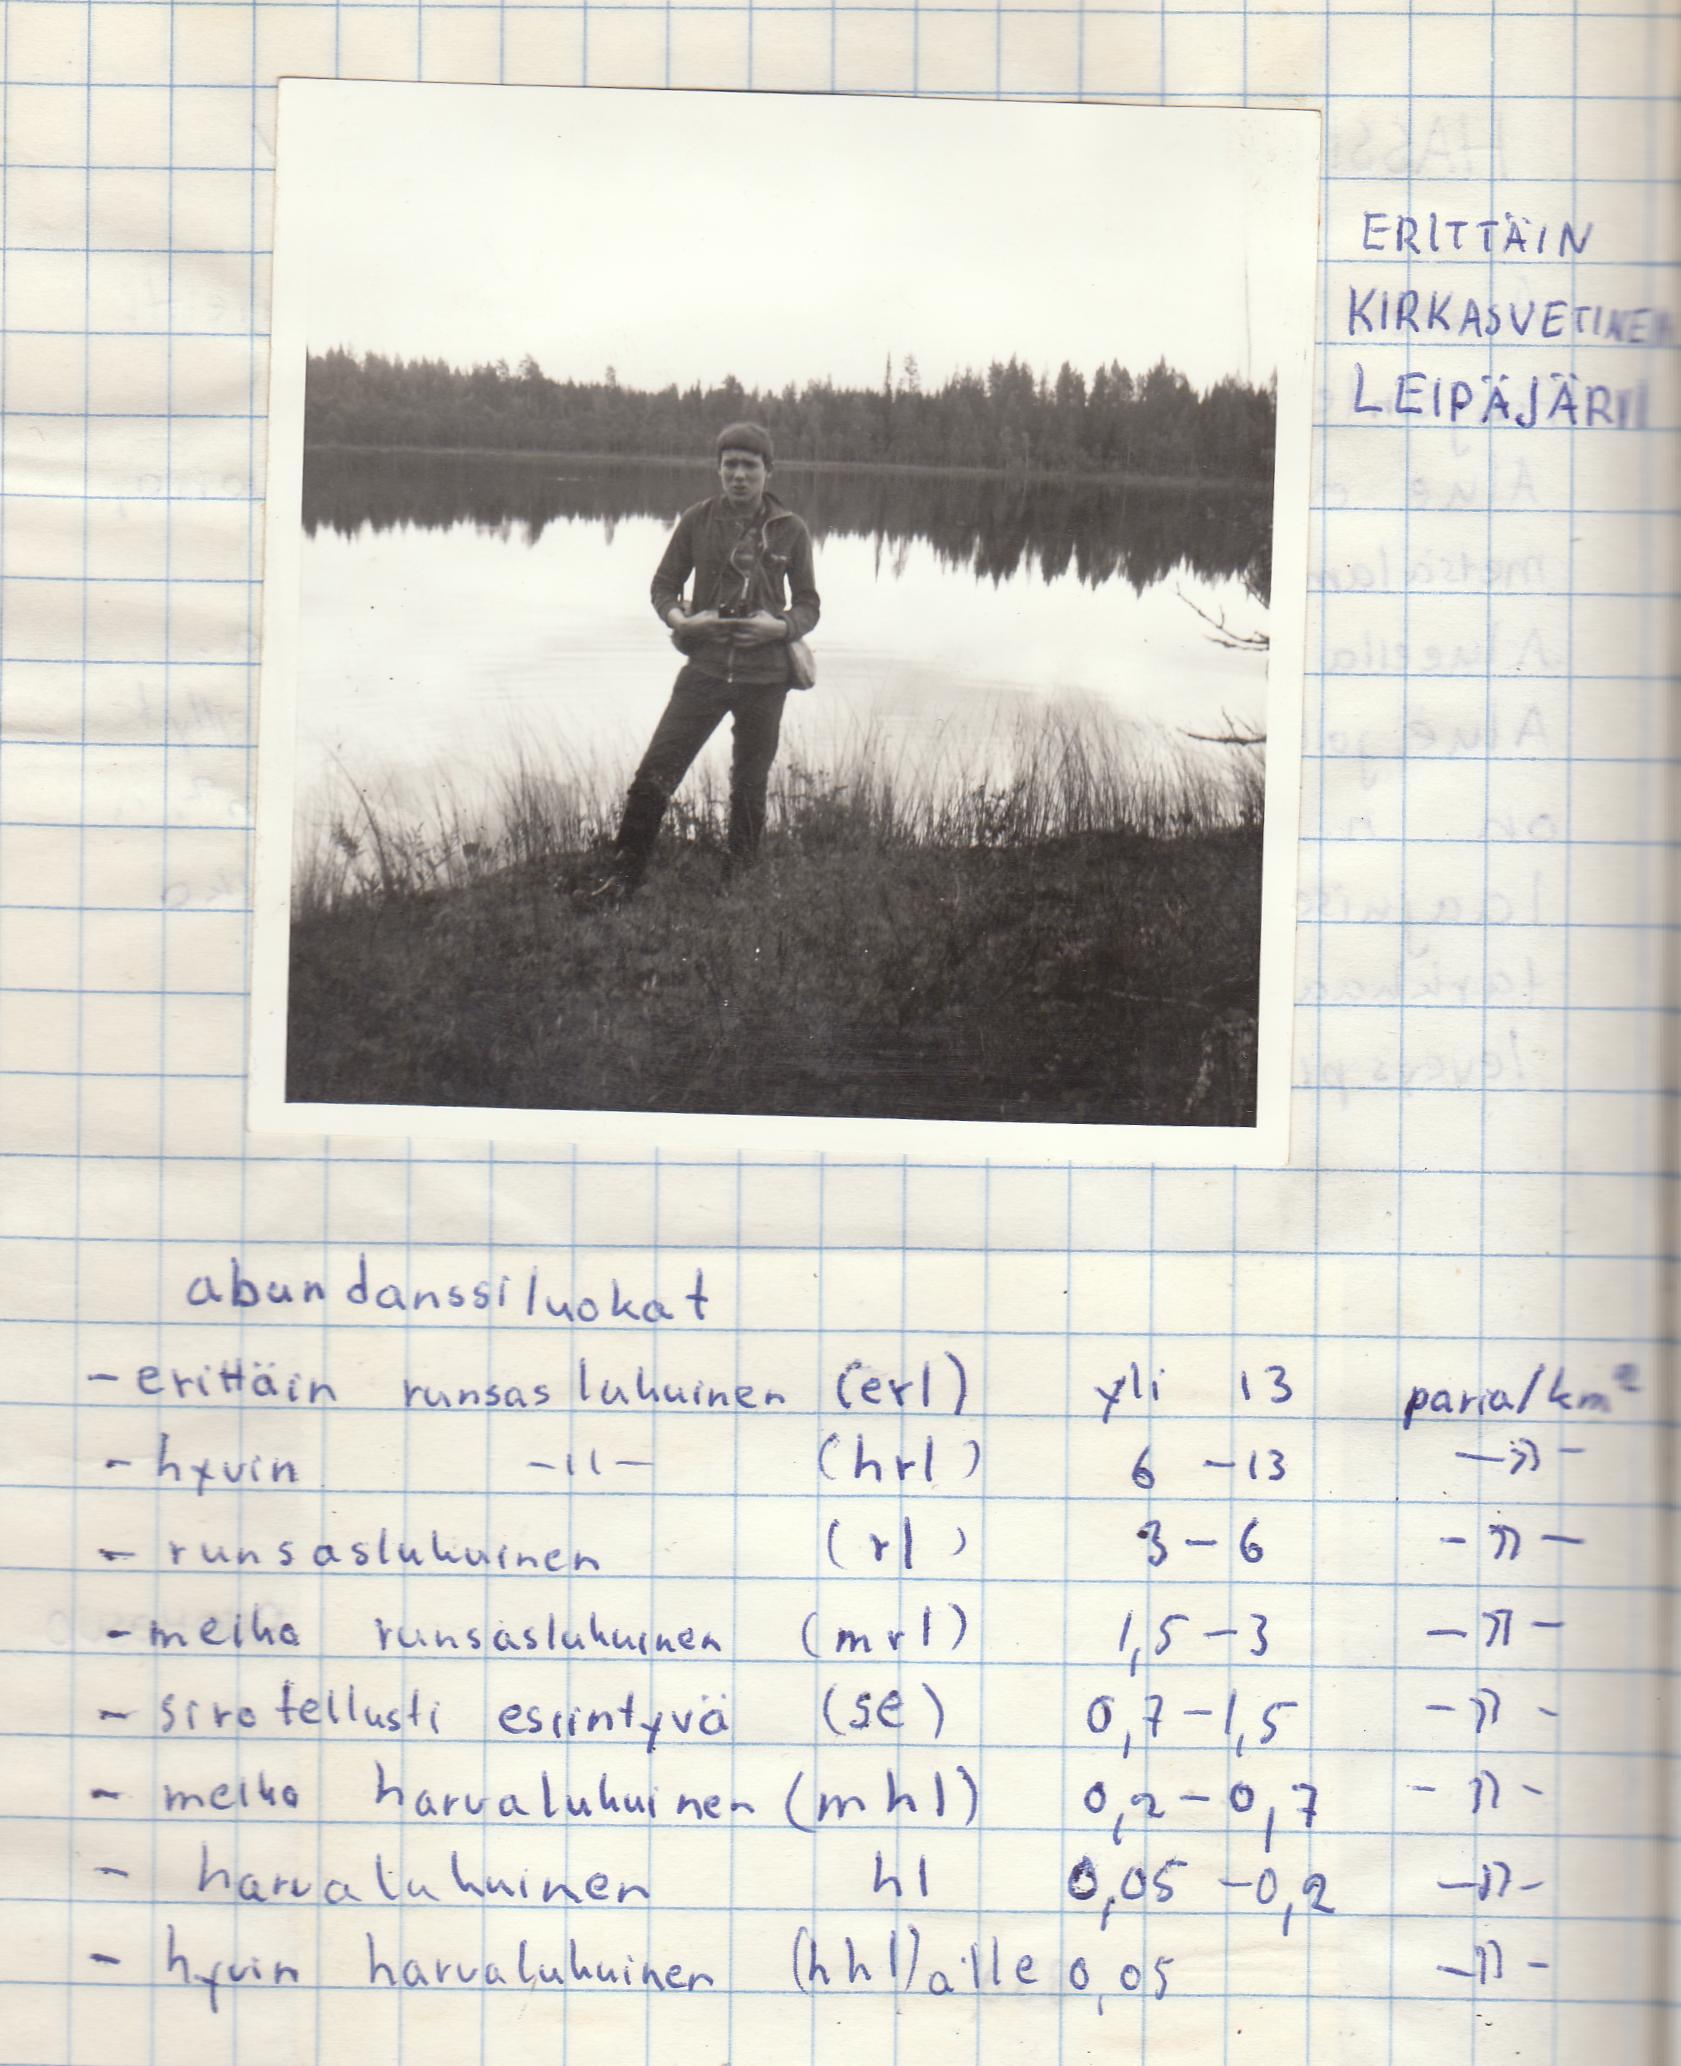 ERITTÄIN
KIRKASVETINEN
LEIPÄJÄRVI
abundanssiluokat
- erittäin runsaslukuinen (erl) yli 13 paria/km²
- hyvin -"- (hrl) 6 -13 -"-
- runsaslukuinen (rl) 3-6 -"-
- melko runsaslukuinen (mrl) 1,5-3 -"-
- sirotellusti esiintyvä (se) 0,7-1,5 -"-
- melko harvalukuinen (mhl) 0,2-0,7 -"-
- harvalukuinen hl 0,05 -0,2 -"-
- hyvin harvalukuinen (hhl) alle 0,05 -"-